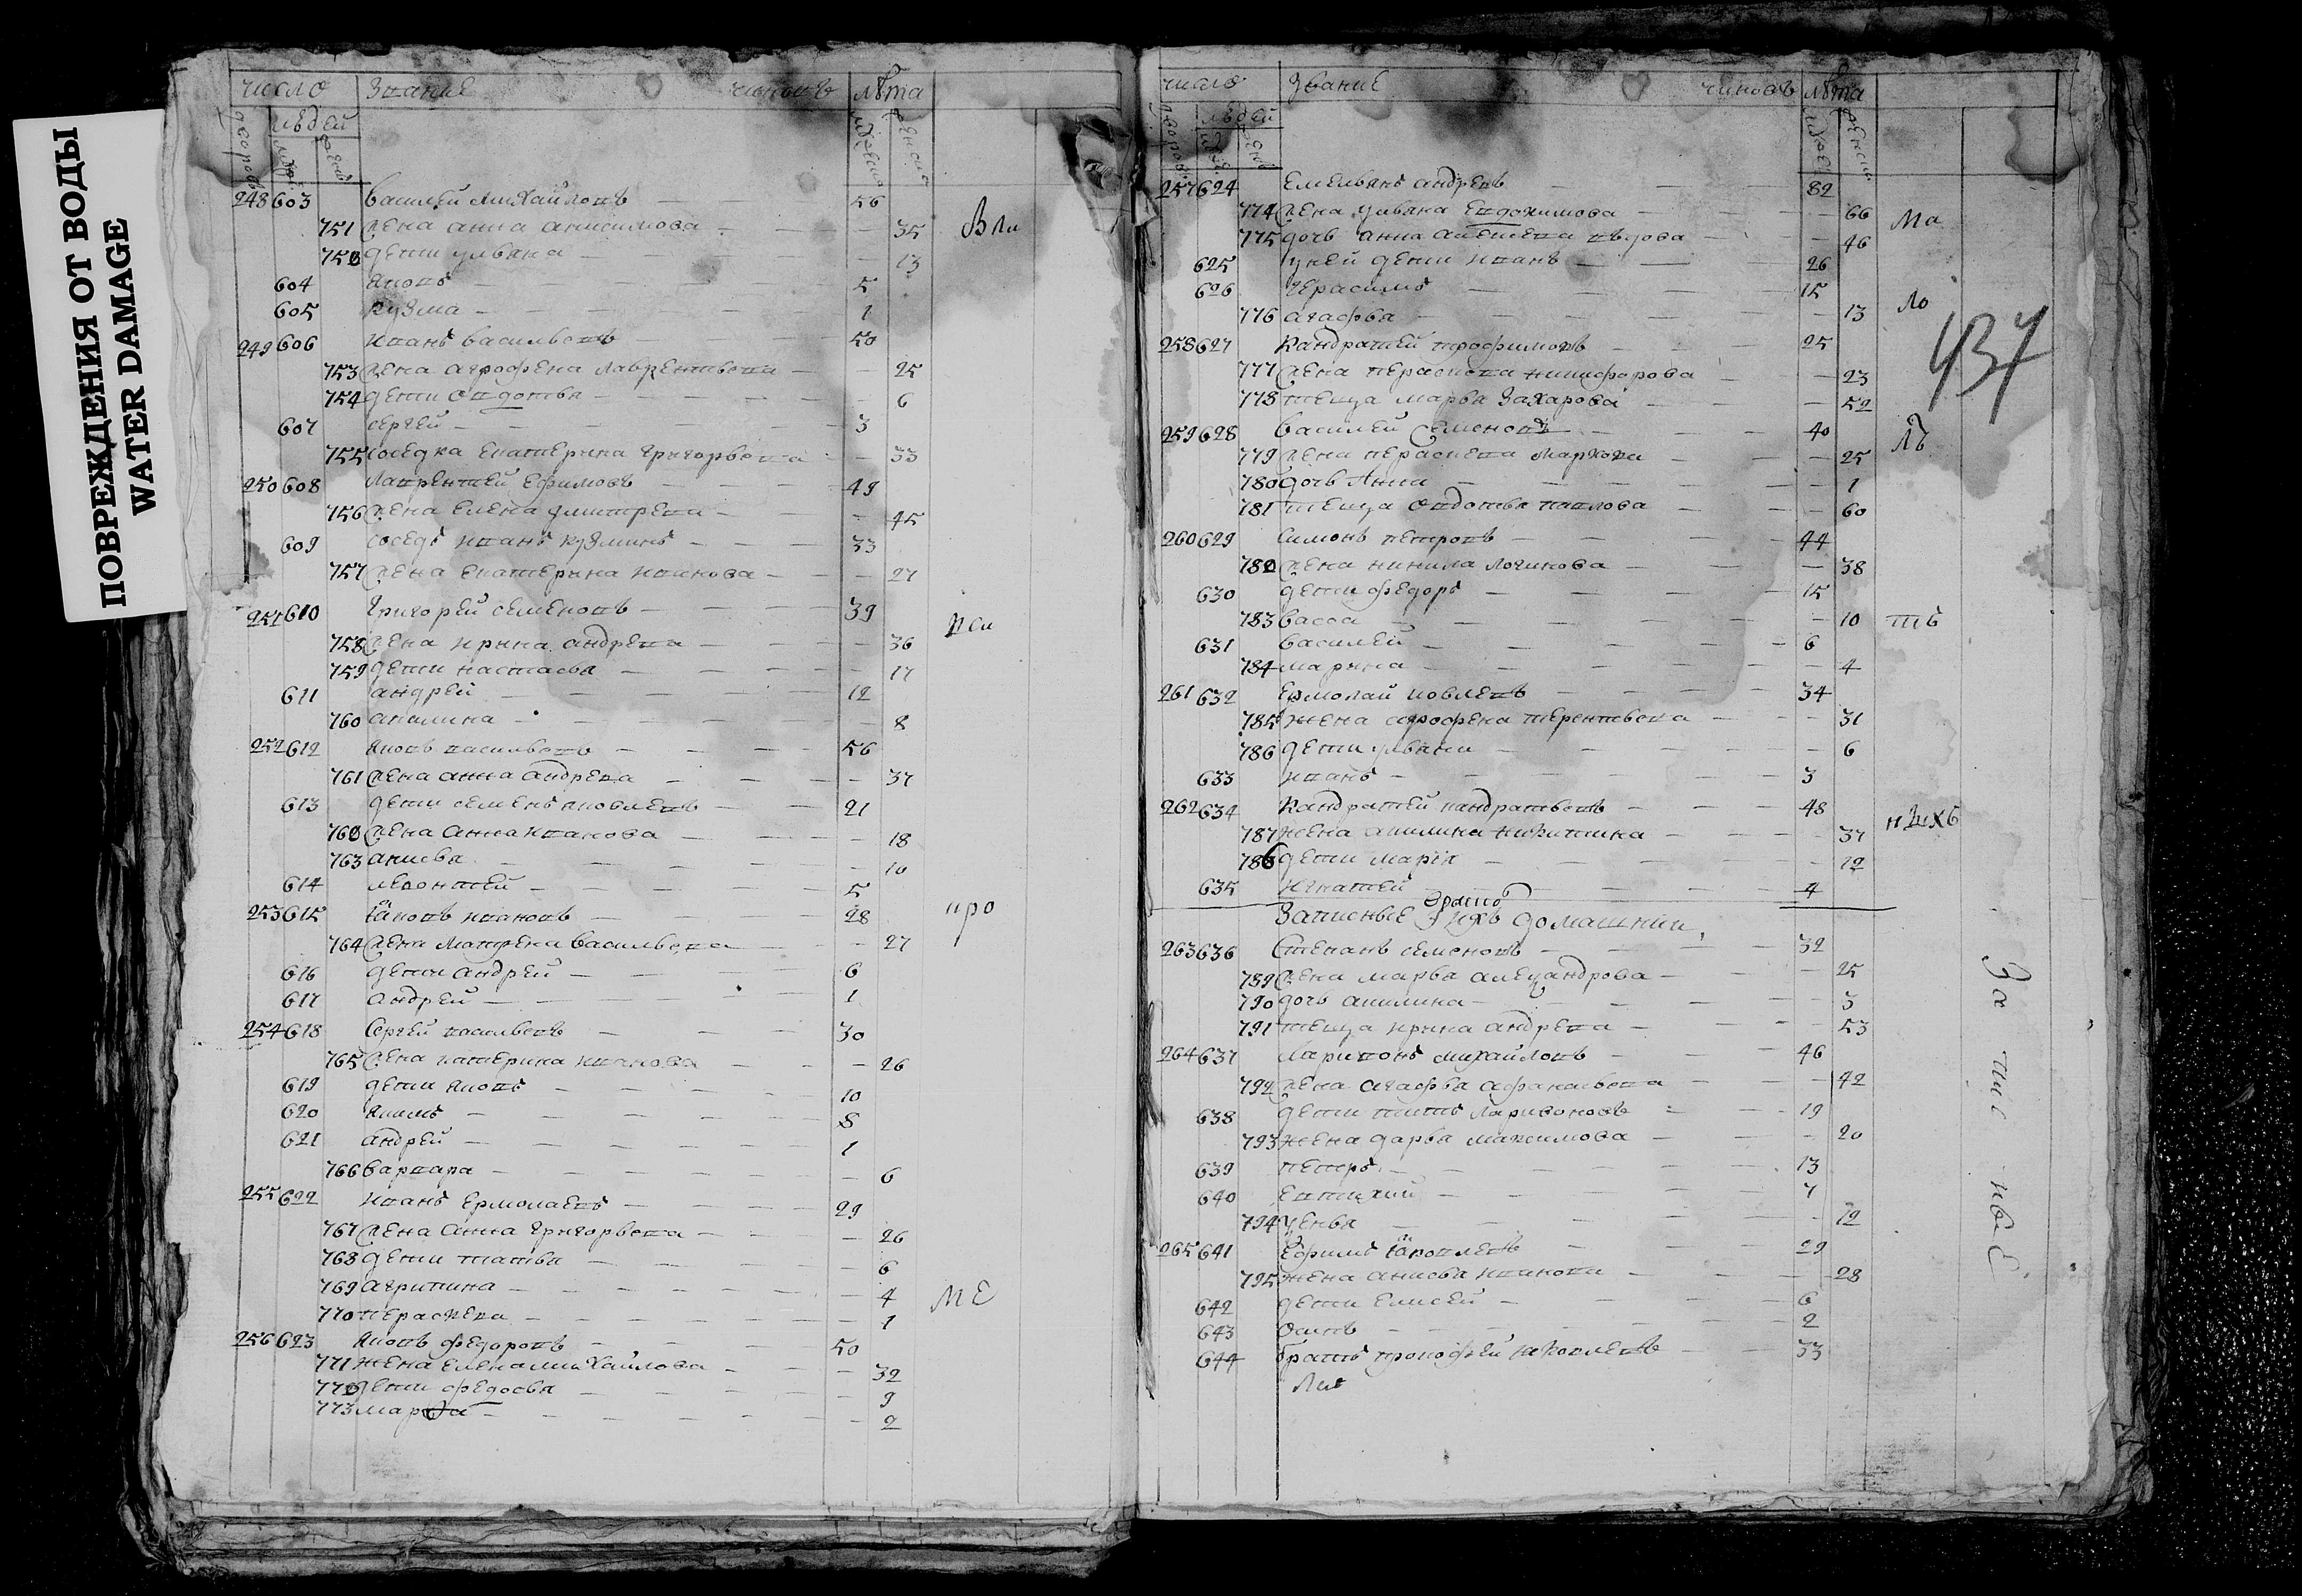 ПОВРЕЖДЕНИЯ ОТ ВОДЫ
WATER DAMAGE
число Звание чиновъ лѣта
дворовъ людей
248 603 Василей Михайловъ 56
751 жена анна анисимова 35
752 дети ульяна 13
604 яковъ 5
605 кузма 1
249 606 Иванъ васильевъ 50
753 жена агрофена лаврентьева 25
754 дети овдотья 6
607 сергей 3
755 соседка екатерина григорьева 33
250 608 Лаврентей ефимовъ 49
756 жена елена дмитрева 45
609 соседъ иванъ кузминъ 33
757 жена екатерина иванова 27
251 610 Григорей семеновъ 39
758 жена ирина андрева 36
759 дети настасья 17
611 андрей 12
760 акилина 8
252 612 яковъ васильевъ 56
761 жена анна андрева 37
613 дети семенъ яковлевъ 21
762 жена анна иванова 18
763 анисья 10
614 леонтей 5
253 615 яковъ ивановъ 28
764 жена матрена васильева 27
616 дети андрей 6
617 андрей 1
254 618 Сергей васильевъ 30
765 жена катерина иванова 26
619 дети яковъ 10
620 якимъ 8
621 андрей 1
766 варвара 6
255 622 Иванъ ермолаевъ 29
767 жена анна григорьева 26
768 дети татья 6
769 агрипина 4
770 пераскева 1
256 623 яковъ федоровъ 50
771 жена елена михайлова 32
772 дети федосья 9
773 марфа 2
Вли
про
МЕ
число Звание чиновъ лѣта
дворовъ людей
257 624 Емельянъ андревъ 82
774 жена ульяна евдокимова 66
775 дочь анна алексеева вдова 46
625 у ней дети иванъ 26
626 герасимъ 15
776 агафья 13
258 627 Кандратей трофимовъ 25
777 жена пераскева никифорова 23
778 теща марья захарова 52
259 628 Василей Семеновъ 40
779 жена пераскева маркова 25
780 дочь Анна 1
781 теща овдотья павлова 60
260 629 Симонъ петровъ 44
782 жена никила логинова 38
630 дети федоръ 15
783 васса 10
631 василей 6
784 марина 4
261 632 Ермолай иовлевъ 34
785 жена агрофена терентьева 31
786 дети ульяна 6
633 иванъ 3
262 634 Кандратей кандратьевъ 48
787 жена акилина никитина 37
788 дети мария 12
635 игнатей 4
Записные ихъ домашнии
263 636 Степанъ семеновъ 32
789 жена марья александрова 25
790 дочь акилина 3
791 теща ирина андрева 53
264 637 Ларивонъ михайловъ 46
792 жена агафья афанасьева 42
638 дети титъ ларивоновъ 19
793 жена дарья максимова 20
639 петръ 13
640 евтихий 7
794 12
265 641 Ефимъ яковлевъ 29
795 жена анисья иванова 28
642 дети елисей 6
643 осипъ 2
644 братъ прокофей яковлевъ 33
Ма
Ло
437
ЛЪ
ть
нихъ
За пис ные